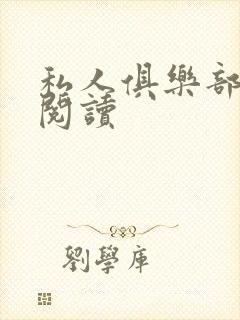 私人俱樂部
閱讀
劉學庫